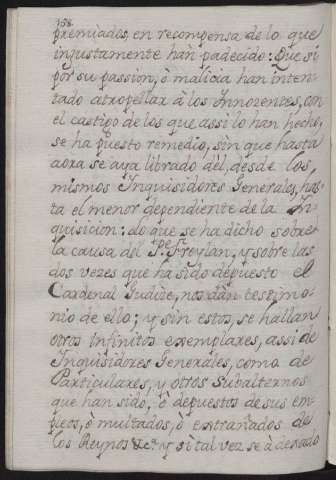 158.
premiados, en recompensa de lo que
injustamente han padecido: Que si
por su passion, ò malicia han inten-
tado atropellar à los Innocentes, con
el castigo de los que assi lo han hecho,
se ha puesto remedio, sin que hasta
aora se aya librado dèl, desde los
mismos Inquisidores Generales, has-
ta el menor dependiente de la In-
quisicion: lo que se ha dicho sobre
la causa del Pe. Freylan, y sobre las
dos vezes que ha sido depuesto el
Cardenal Judize, nos dàn testimo-
nio de ello; y sin estos, se hallan
otros Infinitos exemplares, assi de
Inquisidores Generales, como de
Particulares, y otros subalternos
que han sido, ò depuestos de sus em-
pleos, ò multados, ò extrañados de
los Reynos &ca. y si tal vez se à dexado